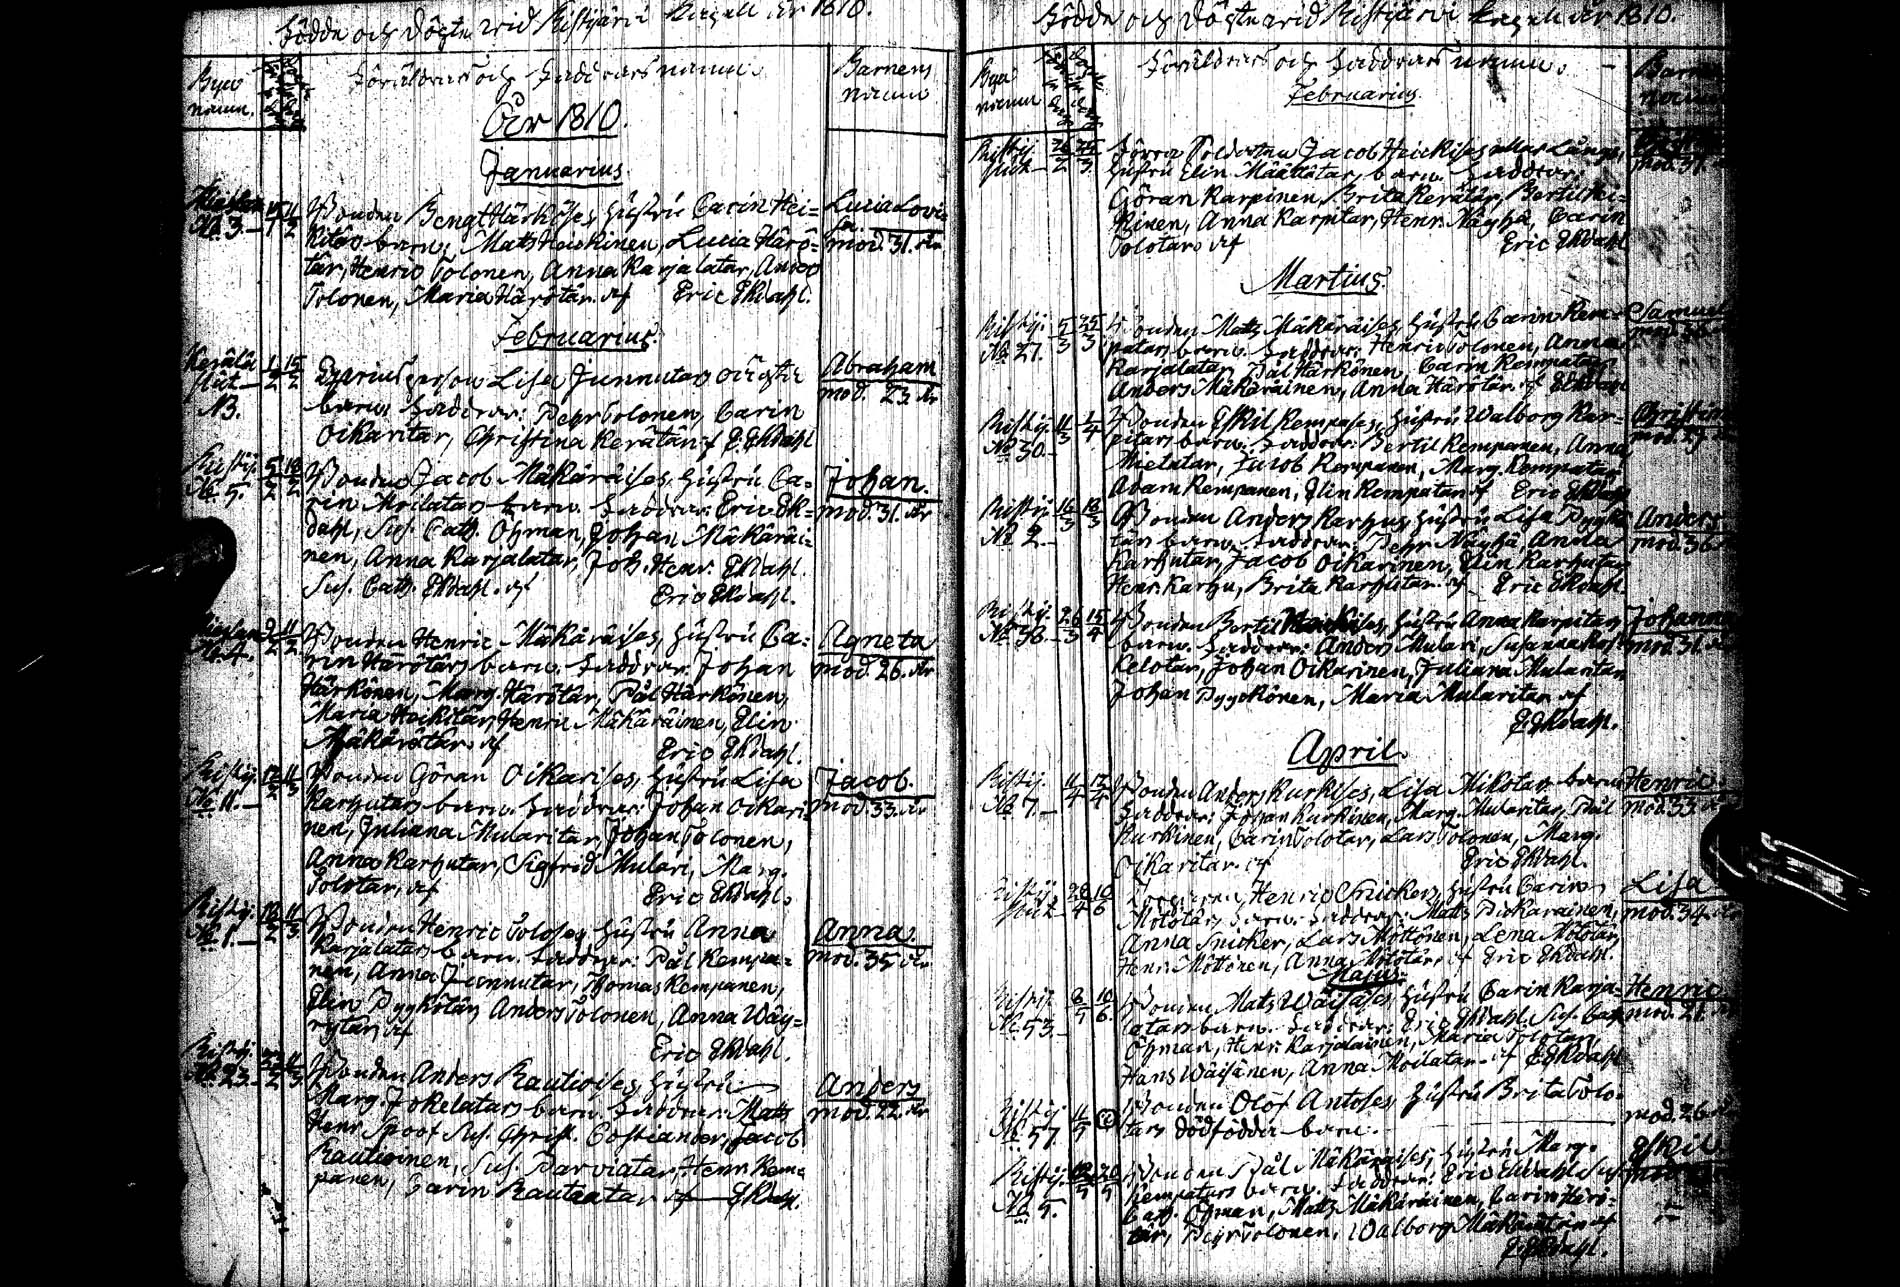 Födde och Döpte vid Ristijärvi Capell år 1810.
Byars namn.
Föräldrars och Faddrars namn.
Barnens namn
År 1810.
Januarius
No 3.
Bonden Bengt Härköses hustru Carin Hei=
kitärs barn: Mats Heickinen, Lucia Härö=
tär, Henric Tolonen, Anna Karjalatar, Anders
Tolonen, Maria Härötär. af Eric Ekdahl.
Lucia Lovi=
sa.
mod. 31. år
Februarius.
Kerälä
NB.
1/2 15/2
Lisa Junnutars oächta
barn. Faddrar: Pehr Tolonen, Carin
Oikaritar, Christina Kerätär af E. Ekdahl
Abraham
mod. 23. år
Ristij.
No 5.
Bonden Jacob Mäkäräises hustru Ca=
rin Moilatars barn. Faddrar: Eric Ek=
dahl, Sus. Cath. Ohman, Johan Mäkäräi=
nen, Anna Karjalatar, Joh. Henr. Ekdahl.
Sus. Cath. Ekdahl. af Eric Ekdahl.
Johan.
mod. 31. år
No 4.
Bonden Henric Mäkäräises hustru Ca=
rin Härötärs barn. Faddrar: Johan
Härkönen, Marg. Härötär, Pål Härkönen,
Maria Heikitär, Henric Mäkäräinen, Elin
Mäkärätär. af Eric Ekdahl.
Agneta
mod. 26. år
Ristij.
No 11.
Bonden Göran Oikarises hustru Lisa
Karhutars barn. Faddrar: Johan Oikari=
nen, Juliana Mularitar, Johan Tolonen,
Anna Karhutar, Sigfrid Mulari, Marg.
Tolotar, af Eric Ekdahl.
Jacob.
mod. 33. år
Ristij.
No 1.
Bonden Henric Toloses hustru Anna
Karjalatars barn. Faddrar: Pål Kempa=
nen, Anna Junnutar, Thomas Kempanen,
Elin Pyykötär, Anders Tolonen, Anna Väy=
rytär, af
Eric Ekdahl.
Anna.
mod. 35 år
Ristij.
No 23.
Bonden Anders Rautioises hustru
Marg. Jokelatars barn. Faddrar: Mats
Henr. Spoof Sus. Christ. Costiander, Jacob
Rautioinen, Sus. Parviatar, Henr. Kem=
panen, Carin Rautiatar af Ekdahl.
Anders
mod. 22. år
Födde och Döpte vid Ristijärvi Capell år 1810.
Byars namn
Föräldrars och Faddrars namn.
Februarius.
Ristij.
Förra Soldaten Jacob Heickises
hustru Elin Määttätärs barn. Faddrar:
Göran Karpinen, Brita Kerätär, Bertil Hei=
kinen, Anna Karpitar, Henr. Näyhä, Carin
Tolotar. af Eric Ekdahl
mod. 31.
Martius.
Ristij.
No 27.
5/3 25/3
Bonden Mats Mäkäräises hustru Carin Kem=
patars barn. Faddrar: Henric Tolonen, Anna
Karjalatar, Pål Härkönen, Carin Kempatar,
Anders Mäkäräinen, Anna Härötär. af Ekdahl
Samuel
Ristij.
No 30.
11/3 1/4
Bonden Eskil Kempases hustru Walborg Kar=
pitars barn. Faddrar: Bertil Kempanen, Anna
Mietatar, Jacob Kempanen, Marg. Kempatar
Adam Kempanen, Elin Kempatar. af Eric Ekdahl
Christina
Ristij.
No 2.
16/3 18/3
Bonden Anders Karhus hustru Lisa Pyykö
tärs barn. Faddrar: Pehr Näyhä, Anna
Karhutar, Jacob Oikarinen, Elin Karhutar
Henr. Karhu, Brita Karhutar. af Eric Ekdahl.
Anders
mod. 36.
Ristij.
No 36.
26/3 15/4
Bonden Bertil Heickises hustru Anna Karpitars
barn. Faddrar: Anders Mulari,
Kelotar, Johan Oikarinen, Juliana Mularitar
Johan Pyykkönen, Maria Mularitar. af
E. Ekdahl.
Johanna
mod. 31. år
April.
Ristij.
No 7.
Bonden Anders Kurkises, Lisa Mikotars barn
Faddrar: Johan Kurkinen, Marg. Mularitar, Påhl
Kurkinen, Carin Tolotar, Lars Tolonen, Marg.
Oikaritar. af Eric Ekdahl.
Henric.
mod. 33 år
Ristij.
Henric Snickers hustru Carin
Mötötärs barn. Faddrar: Mats Pickarainen,
Anna Snicker, Lars Möttönen, Lena Mötötär,
Henr. Möttönen, Anna Mötötär. af Eric Ekdahl.
Lisa
mod. 34. år
Majus.
Ristij.
No 53.
Bonden Mats Väisäses hustru Carin Karja=
latars barn. Faddrar: Eric Ekdahl, Sus. Cath
Öhman, Henr. Karjalainen, Maria Tolotar,
Hans Wäisänen, Anna Moilatar. af E Ekdahl
Henric
mod. 21. år
Ristij.
No 57.
Bonden Olof Antoses hustru Brita Tolo=
tars dödfödda barn.
mod. 26 år
Ristij.
No 5.
Bonden Pål Mäkäräises hustru Marg.
Kempatars barn. Faddrar: Eric Ekdahl Sus
Cath. Öhman, Mats Mäkäräinen, Carin Härö=
tär, Pehr Tolonen, Walborg Mäkärätär af
E. Ekdahl.
Eskil